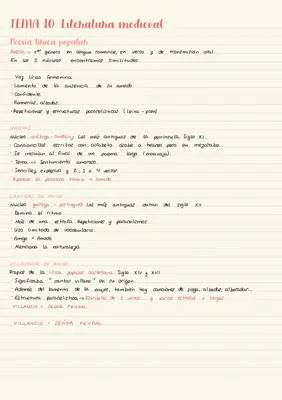 TEMA 10: Literatura medieval
Poesía lírica popular
Poesía → 1er género en lengua romance, en verso y de transmisión oral.
En los 3 núcleos encontramos similitudes
· Voz lírica femenina
· Lamento de la ausencia de su amado
· Confidente
· Romerías, albadas
· Repeticiones y estructuras paralelísticas (leixa-pren)
Núcleo Las más antiguas de la península. Siglo XI
en alfabeto árabe o hebreo para su
· Se al final de un poema largo (moaxaja)
· Tema → Sentimiento amoroso
· Sencillez expresiva y 2, 3 o 4 versos
CANTIGAS DE AMIGO
Núcleo galaico - portugués Las más antiguas datan del siglo XII
· Domina el ritmo
· Más de una estrofa. Repeticiones y paralelismos
· Uso limitado de vocabulario
· Amigo = Amado
· Menciona la naturaleza
VILLANCICO DE AMOR
Propias de la lírica popular castellana. Siglo XV y XVI
· Significaba " cantar villano " en su origen
· Además del lamento de la mujer, también hay canciones de siega, albadas, alboradas...
· Estructura paralelística → Estribillo de 2 versos y varias estrofas
VILLANCICO =
VILLANCICO =